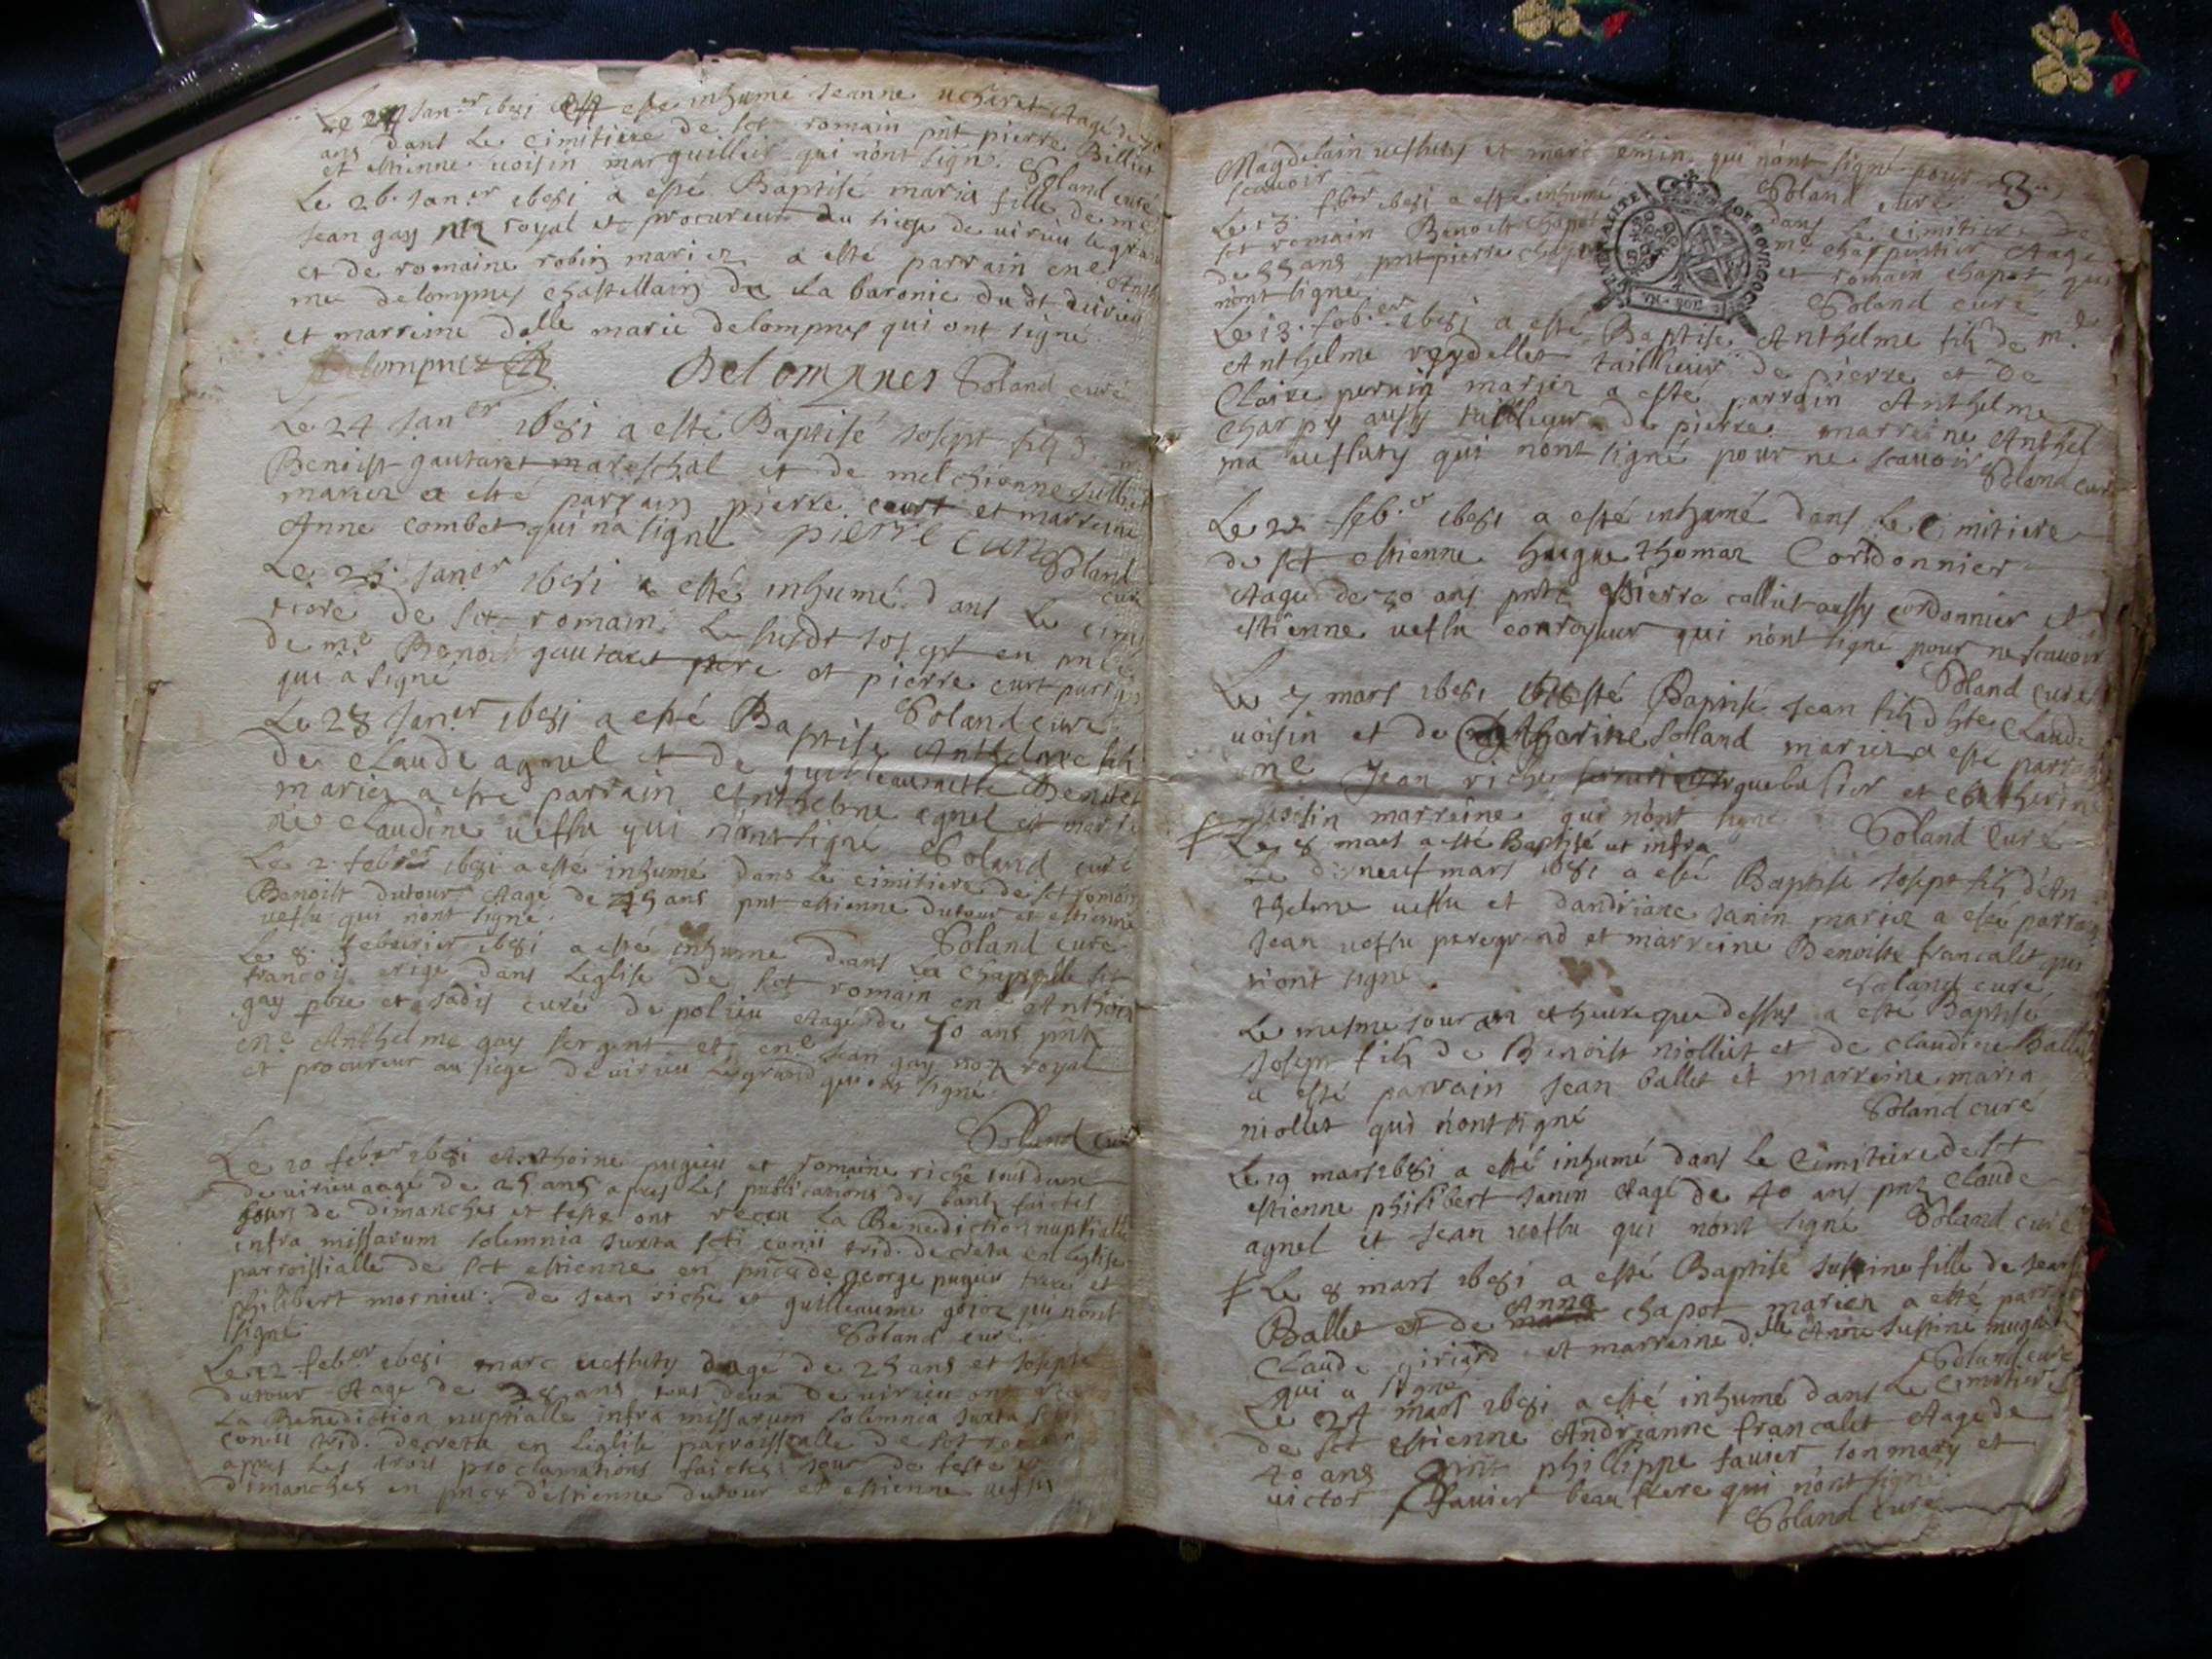 Le 24 Janer 1681 a esté inhumé Jeanne ucheret Aagé de
ans dans Le Cimitiere de sct romain pnt pierre Billiet
et estienne uoisin marguillier qui nont signe. Soland curé
Le 26. Janer 1681 a esté Baptisé maria fille de me
Jean gay royal et procureur du siege de uirieu le grand
et de romaine robin mariez a esté parrain ene Anth
me delompnes chastellain de La baronie dudt uirieu
et marreine dalle marie delompnes qui ont signé
Delompnes Delompnes Soland curé
Le 24 Janer 1681 a esté Baptisé Joseph fils d
Benoist gautaret mareschal et de melchionne
mariez a esté parrain pierre curt et marreine
Anne combet qui na signé pierre curt Soland
curé
Le 25 Janer 1681 a esté inhumé dans Le cimi
tiere de sct romain Le susdt Joseph en pnce
de me Benoist gautaret pere et pierre curt parrain
qui a signé
Soland curé
Le 28 Janer 1681 a esté Baptisé Anthelme fils
de Claude agnel et de guilleaumette Benoist
mariez a esté parrain Anthelme agnel et marrei
ne Claudine ueflu qui n'ont signé Soland curé
Le 2 febrer 1681 a esté inhumé dans Le cimitiere de sct romain
Benoist dutour Aagé de 45 ans pnt estienne dutour et estienne
ueflu qui nont signe.
Soland curé
Le 8. feburier 1681 a esté inhumé dans La chappelle sct
francois erigé dans Leglise de sct romain ene Anthoin
gay pbre et Jadis curé de polieu Aagé de 70 ans pnt
ene Anthelme gay sergent et ene Jean gay nore royal
et procureur au siege de uirieu Legrand qui ont signé
Soland curé
Le 10 febrer 1681 Anthoine pugieu et romaine riche tout deux
de uirieu aagé de 25 ans apres Les publications des bans faictes
jours de dimanches et feste ont receu La Benediction nuptialle
infra missarum solemnia Juxta scti conii trid. decreta en Leglise
parroissialle de sct estienne en pnce de george pugieu frere et
philibert mornieu. de Jean riche et guilleaume gojoz qui nont
signé
Soland curé
Le 12 feber 1681 marc uefluty dagé de 25 ans et Josepte
dutour Aage de 28 ans tout deux de uirieu ont receu
La Benediction nuptialle infra missarum solemnia Juxta scti
conii trid. decreta en Leglise parroissialle de sct romain
apres Les trois proclamations faictes jour de feste et
dimanches en pnce d'estienne dutour et estienne ueflu
3
Magdelain uefluty et marc emin qui nont signé pour
scauoir
Soland curé
Le 13. fber 1681 a esté inhumé dans Le cimitiere de
sct romain Benoist chapot me charpentier Aage
de 55 ans pnt pierre chapot et romain chapot qui
nont signe
Soland curé
GENERALITE DE BOURGOGNE
Le 13. feber 1681 a esté Baptise Anthelme fils de me
Anthelme reydellet taillieur de pierre et de
Claire perrin mariez a esté parrain Anthelme
charpy aussy taillieur de pierre marreine Anthel
ma uefluty qui nont signé pour ne scauoir
Soland curé
Le 22 feber 1681 a esté inhumé dans Le Cimitiere
de sct estienne hugue thomaz Cordonnier
Aagé de 50 ans pnt Pierre calliet aussy cordonnier et
estienne ueflu couroyeur qui nont signé pour ne scauoir
Soland curé
Le 7 mars 1681 a esté Baptisé Jean fils d hte Claude
uoisin et de Catherine Solland mariez a esté parrain
me Jean riche arquebusier et Catherine
uoisin marreine qui nont signé
Soland Curé
Le 8 mars a esté Baptisé ut infra
Le disneuf mars 1681 a esté Baptise Joseph fils d'An
thelme ueflu et dandriane Janin mariez a esté parrain
Jean ueflu peregrand et marreine Benoiste francalet qui
nont signé.
Soland curé
Le mesme jour an et heure que dessus a esté Baptisé
Joseph fils de Benoist niollet et de claudine Ballet
a esté parrain Jean ballet et marreine maria
niollet qui nont signé
Soland curé
Le 19 mars 1681 a esté inhumé dans Le Cimitiere de sct
estienne philibert Janin Aagé de 40 ans pnt Claude
agnel et Jean ueflu qui nont signé Soland curé
Le 8 mars 1681 a esté Baptisé Justine fille de Jean
Ballet et de Anne chapot mariez a esté parrain
Claude giriard et marreine dlle Anne Justine mugnier
qui a signé
Soland curé
Le 24 mars 1681 a esté inhumé dans Le Cimitiere
de sct estienne Andrianne francalet Aage de
40 ans pnt phillippe fauier son mary et
uictor fauier beau frere qui nont signé
Soland curé